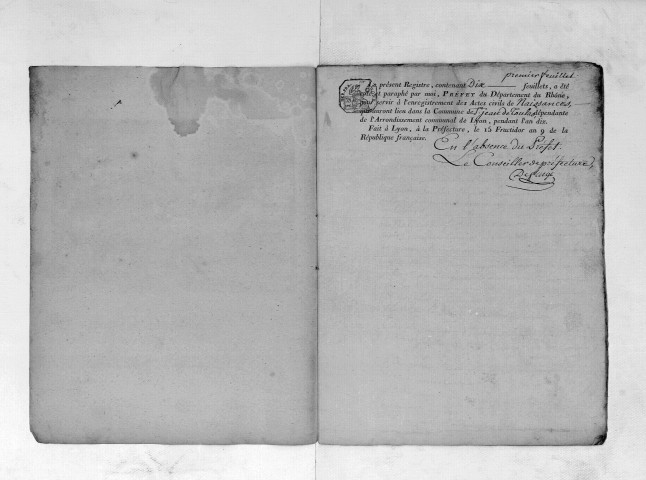 premier feuillet
Le présent Registre, contenant Dix feuillets, a été
et paraphé par moi, PRÉFET du Département du Rhône,
pour servir à l'enregistrement des Actes civils de Naissances
qui auront lieu dans la Commune de St jean de Toulas, dépendante
de l'Arrondissement communal de Lyon, pendant l'an dix.
Fait à Lyon, à la Préfecture, le 15 Fructidor an 9 de la
République française.
En l'absence du Préfet.
Le Conseiller de préfecture,